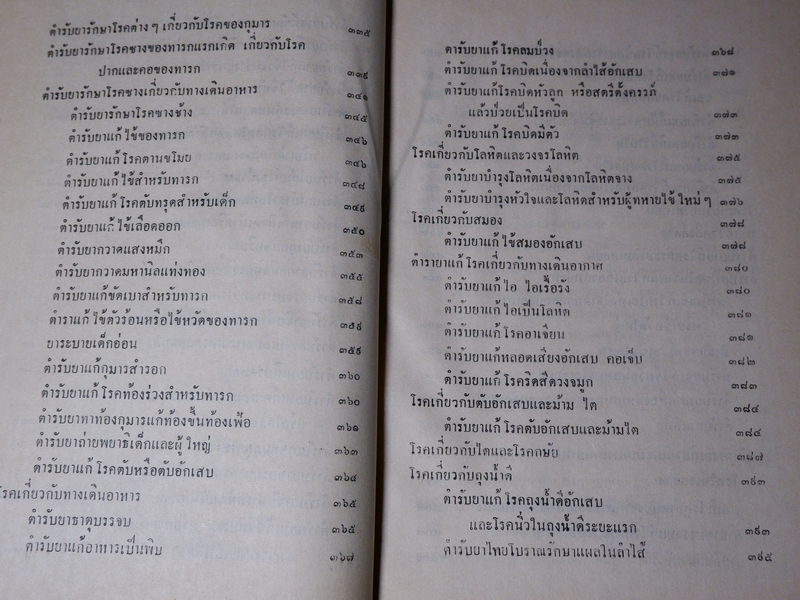 ตำรับยารักษาโรคต่าง ๆ เกี่ยวกับโรคของกุมาร ๓๓๕
ตำรับยารักษาโรคซางของทารกแรกเกิด เกี่ยวกับโรค
ปากและคอของทารก ๓๓๙
ตำรับยารักษาโรคซางเกี่ยวกับทางเดินอาหาร ๓๔๑
ตำรับยารักษาโรคซางช้าง ๓๔๕
ตำรับยาแก้ไข้ของทารก ๓๔๖
ตำรับยาแก้โรคตานขโมย ๓๔๖
ตำรับยาแก้ไข้สำหรับทารก ๓๔๘
ตำรับยาแก้โรคตับทรุดสำหรับเด็ก ๓๔๙
ตำรับยาแก้ไข้เลือดออก ๓๕๐
ตำรับยากวาดแสงหมึก ๓๕๓
ตำรับยากวาดมหานิลแท่งทอง ๓๕๕
ตำรับยาแก้ขัดเบาสำหรับทารก ๓๕๘
ตำราแก้ไข้ตัวร้อนหรือไข้หวัดของทารก ๓๕๙
ยาระบายเด็กอ่อน ๓๕๙
ตำรับยาแก้กุมารสำรอก ๓๖๐
ตำรับยาแก้โรคท้องร่วงสำหรับทารก ๓๖๐
ตำรับยาทาท้องกุมารแก้ท้องขึ้นท้องเฟ้อ ๓๖๑
ตำรับยาถ่ายพยาธิเด็กและผู้ใหญ่ ๓๖๓
ตำรับยาแก้โรคตับหรือตับอักเสบ ๓๖๔
โรคเกี่ยวกับทางเดินอาหาร ๓๖๕
ตำรับยาธาตุบรรจบ ๓๖๕
ตำรับยาแก้อาหารเป็นพิษ ๓๖๗
ตำรับยาแก้โรคลมบ้วง ๓๖๘
ตำรับยาแก้โรคบิดเนื่องจากลำไส้อักเสบ ๓๗๑
ตำรับยาแก้โรคบิดหัวลูก หรือสตรีตั้งครรภ์
แล้วป่วยเป็นโรคบิด ๓๗๓
ตำรับยาแก้โรคบิดมีตัว ๓๗๓
โรคเกี่ยวกับโลหิตและวงจรโลหิต ๓๗๕
ตำรับยาบำรุงโลหิตเนื่องจากโลหิตจาง ๓๗๕
ตำรับยาบำรุงหัวใจและโลหิตสำหรับผู้ที่หายไข้ใหม่ ๆ ๓๗๖
โรคเกี่ยวกับสมอง ๓๗๘
ตำรับยาแก้ไข้สมองอักเสบ ๓๗๘
ตำรายาแก้โรคเกี่ยวกับทางเดินอากาศ ๓๘๐
ตำรับยาแก้ไอ ไอเรื้อรัง ๓๘๐
ตำรับยาแก้ไอเป็นโลหิต ๓๘๑
ตำรับยาแก้โรคอาเจียน ๓๘๑
ตำรับยาแก้หลอดเสียงอักเสบ คอเจ็บ ๓๘๒
ตำรับยาแก้โรคริดสีดวงจมูก ๓๘๓
โรคเกี่ยวกับตับอักเสบและม้าม ไต ๓๘๔
ตำรับยาแก้โรคตับอักเสบและม้ามไต ๓๘๔
โรคเกี่ยวกับไตและโรคกษัย ๓๘๗
โรคเกี่ยวกับถุงน้ำดี ๓๙๓
ตำรับยาแก้โรคถุงน้ำดีอักเสบ
และโรคนิ่วในถุงน้ำดีระยะแรก ๓๙๓
ตำรับยาไทยโบราณรักษาแผลในลำไส้ ๓๙๕